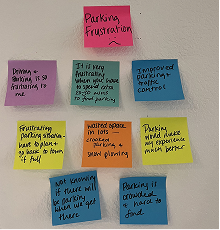 Parking
Frustration
Driving +
Parking is so
frustrating to
me
It is very
frustrating
when you have
to spend extra
mins
to find parking
Improved
parking +
traffic
control
Frustrating
parking
have to plan +
go back to town
if full
wasted space
in lots —
crooked
parking +
snow plowing
Parking
would make
my experience
much better
Not knowing
if there will
be parking
when we get
there
Parking is
crowded
+ hard to
find